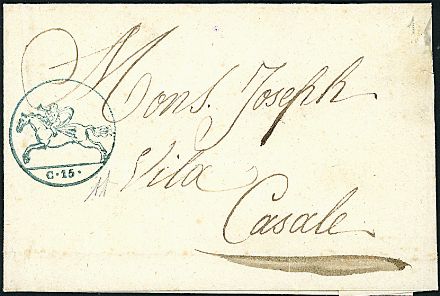 Mons. Joseph
C. 15.
Vila
Casale